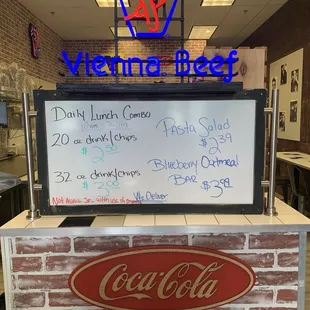 Vienna Beef
Daily Lunch Combo
20 oz drink/chips
32 oz drink/chips
Pasta Salad
$2.39
Blueberry Oatmeal
Bar $3.99
We Deliver
Coca-Cola